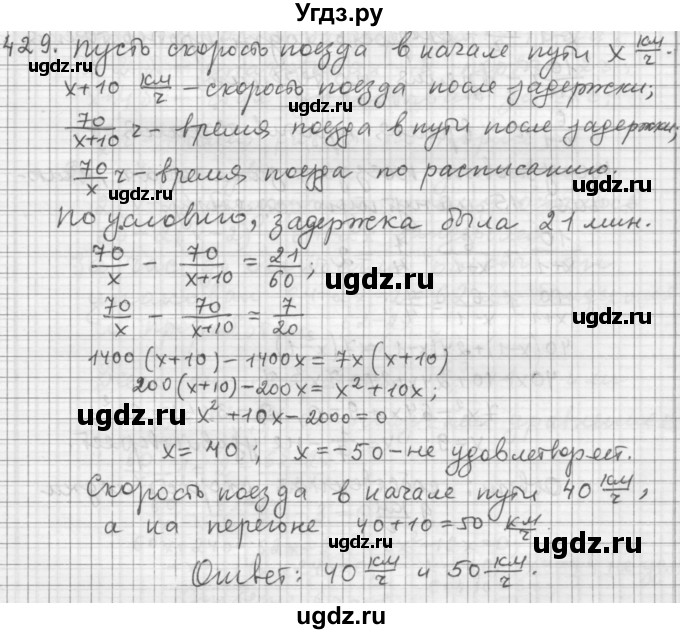 Угдз.ру
429. Пусть скорость поезда в начале пути x км/ч.
uгдз.ru
x+10 км/ч – скорость поезда после задержки;
70/(x+10) ч – время поезда в пути после задержки;
uгдз.ru
70/x ч – время поезда по расписанию.
uгдз.ru
По условию, задержка была 21 мин.
70/x – 70/(x+10) = 21/60;
uгдз.ru
70/x – 70/(x+10) = 7/20
uгдз.ru
1400(x+10) – 1400x = 7x(x+10)
200(x+10) – 200x = x² + 10x;
uгдз.ru
x² + 10x – 2000 = 0
x = 40; x = –50 – не удовлетворяет.
Скорость поезда в начале пути 40 км/ч,
а на перегоне 40+10=50 км/ч.
uгдз.ru
uгдз.ru
Ответ: 40 км/ч и 50 км/ч.
uгдз.ru